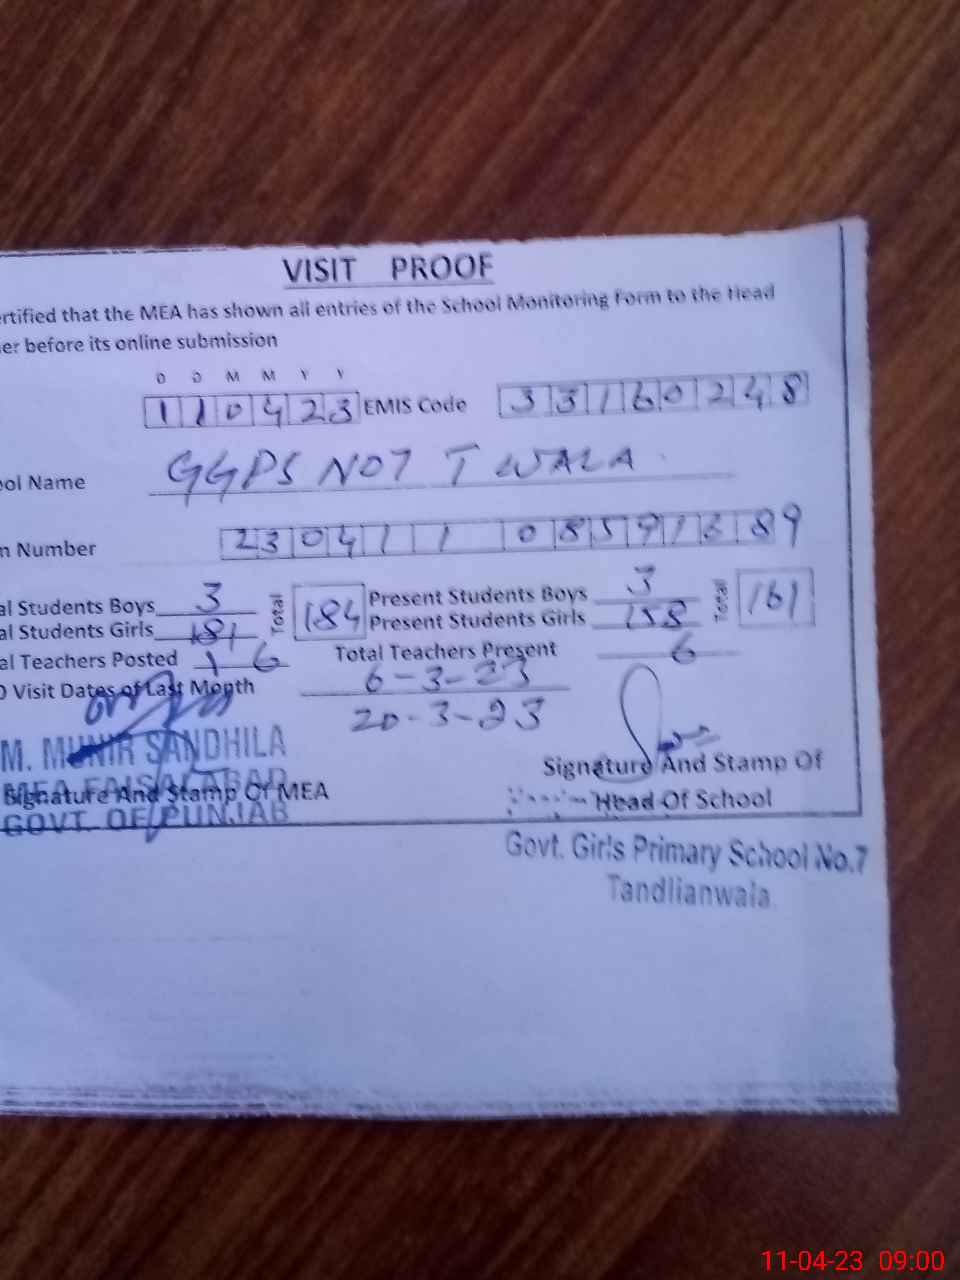 VISIT PROOF
ertified that the MEA has shown all entries of the School Monitoring Form to the Head
er before its online submission
D D M M Y Y
110423 EMIS Code 33160248
ool Name GGPS NO7 T WALA
Number 230411 085916 89
al Students Boys 3 Total 184 Present Students Boys 3 Total 161
al Students Girls 181 Present Students Girls 158
al Teachers Posted 6 Total Teachers Present 6
Visit Dates of Last Month 6-3-23
20-3-23
M. MUNIR SANDHILA
MEA FAISALABAD
Signature And Stamp Of MEA
GOVT. OF PUNJAB
Signature And Stamp Of
Head Of School
Govt. Girls Primary School No.7
Tandlianwala
11-04-23 09:00